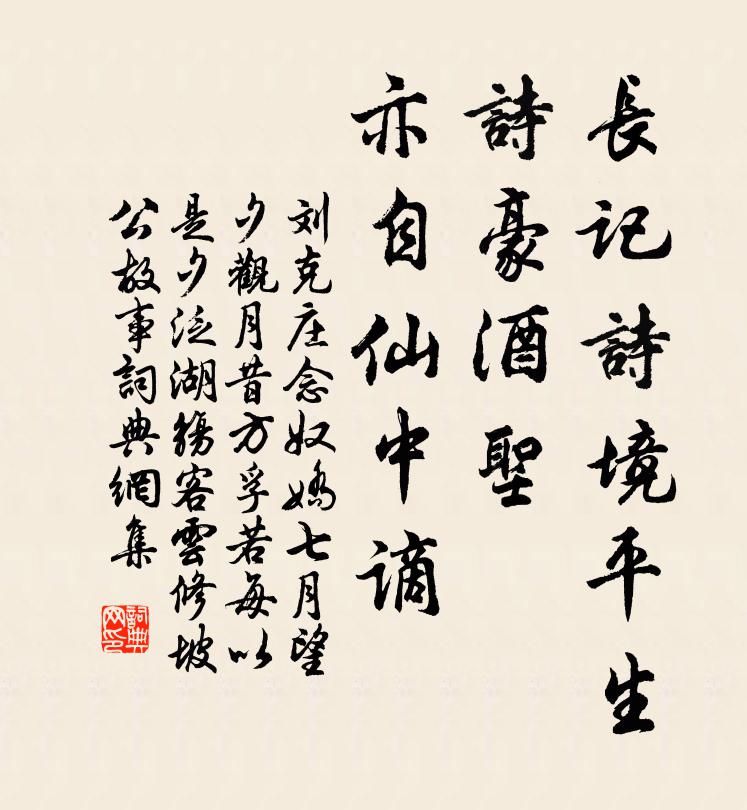 長記詩境平生
詩豪酒聖
亦自仙中謫
刘克庄念奴嬌七月望
夕觀月昔方孚若每以
是夕泛湖觴客雲修坡
公故事詞典網集
詞典
网印